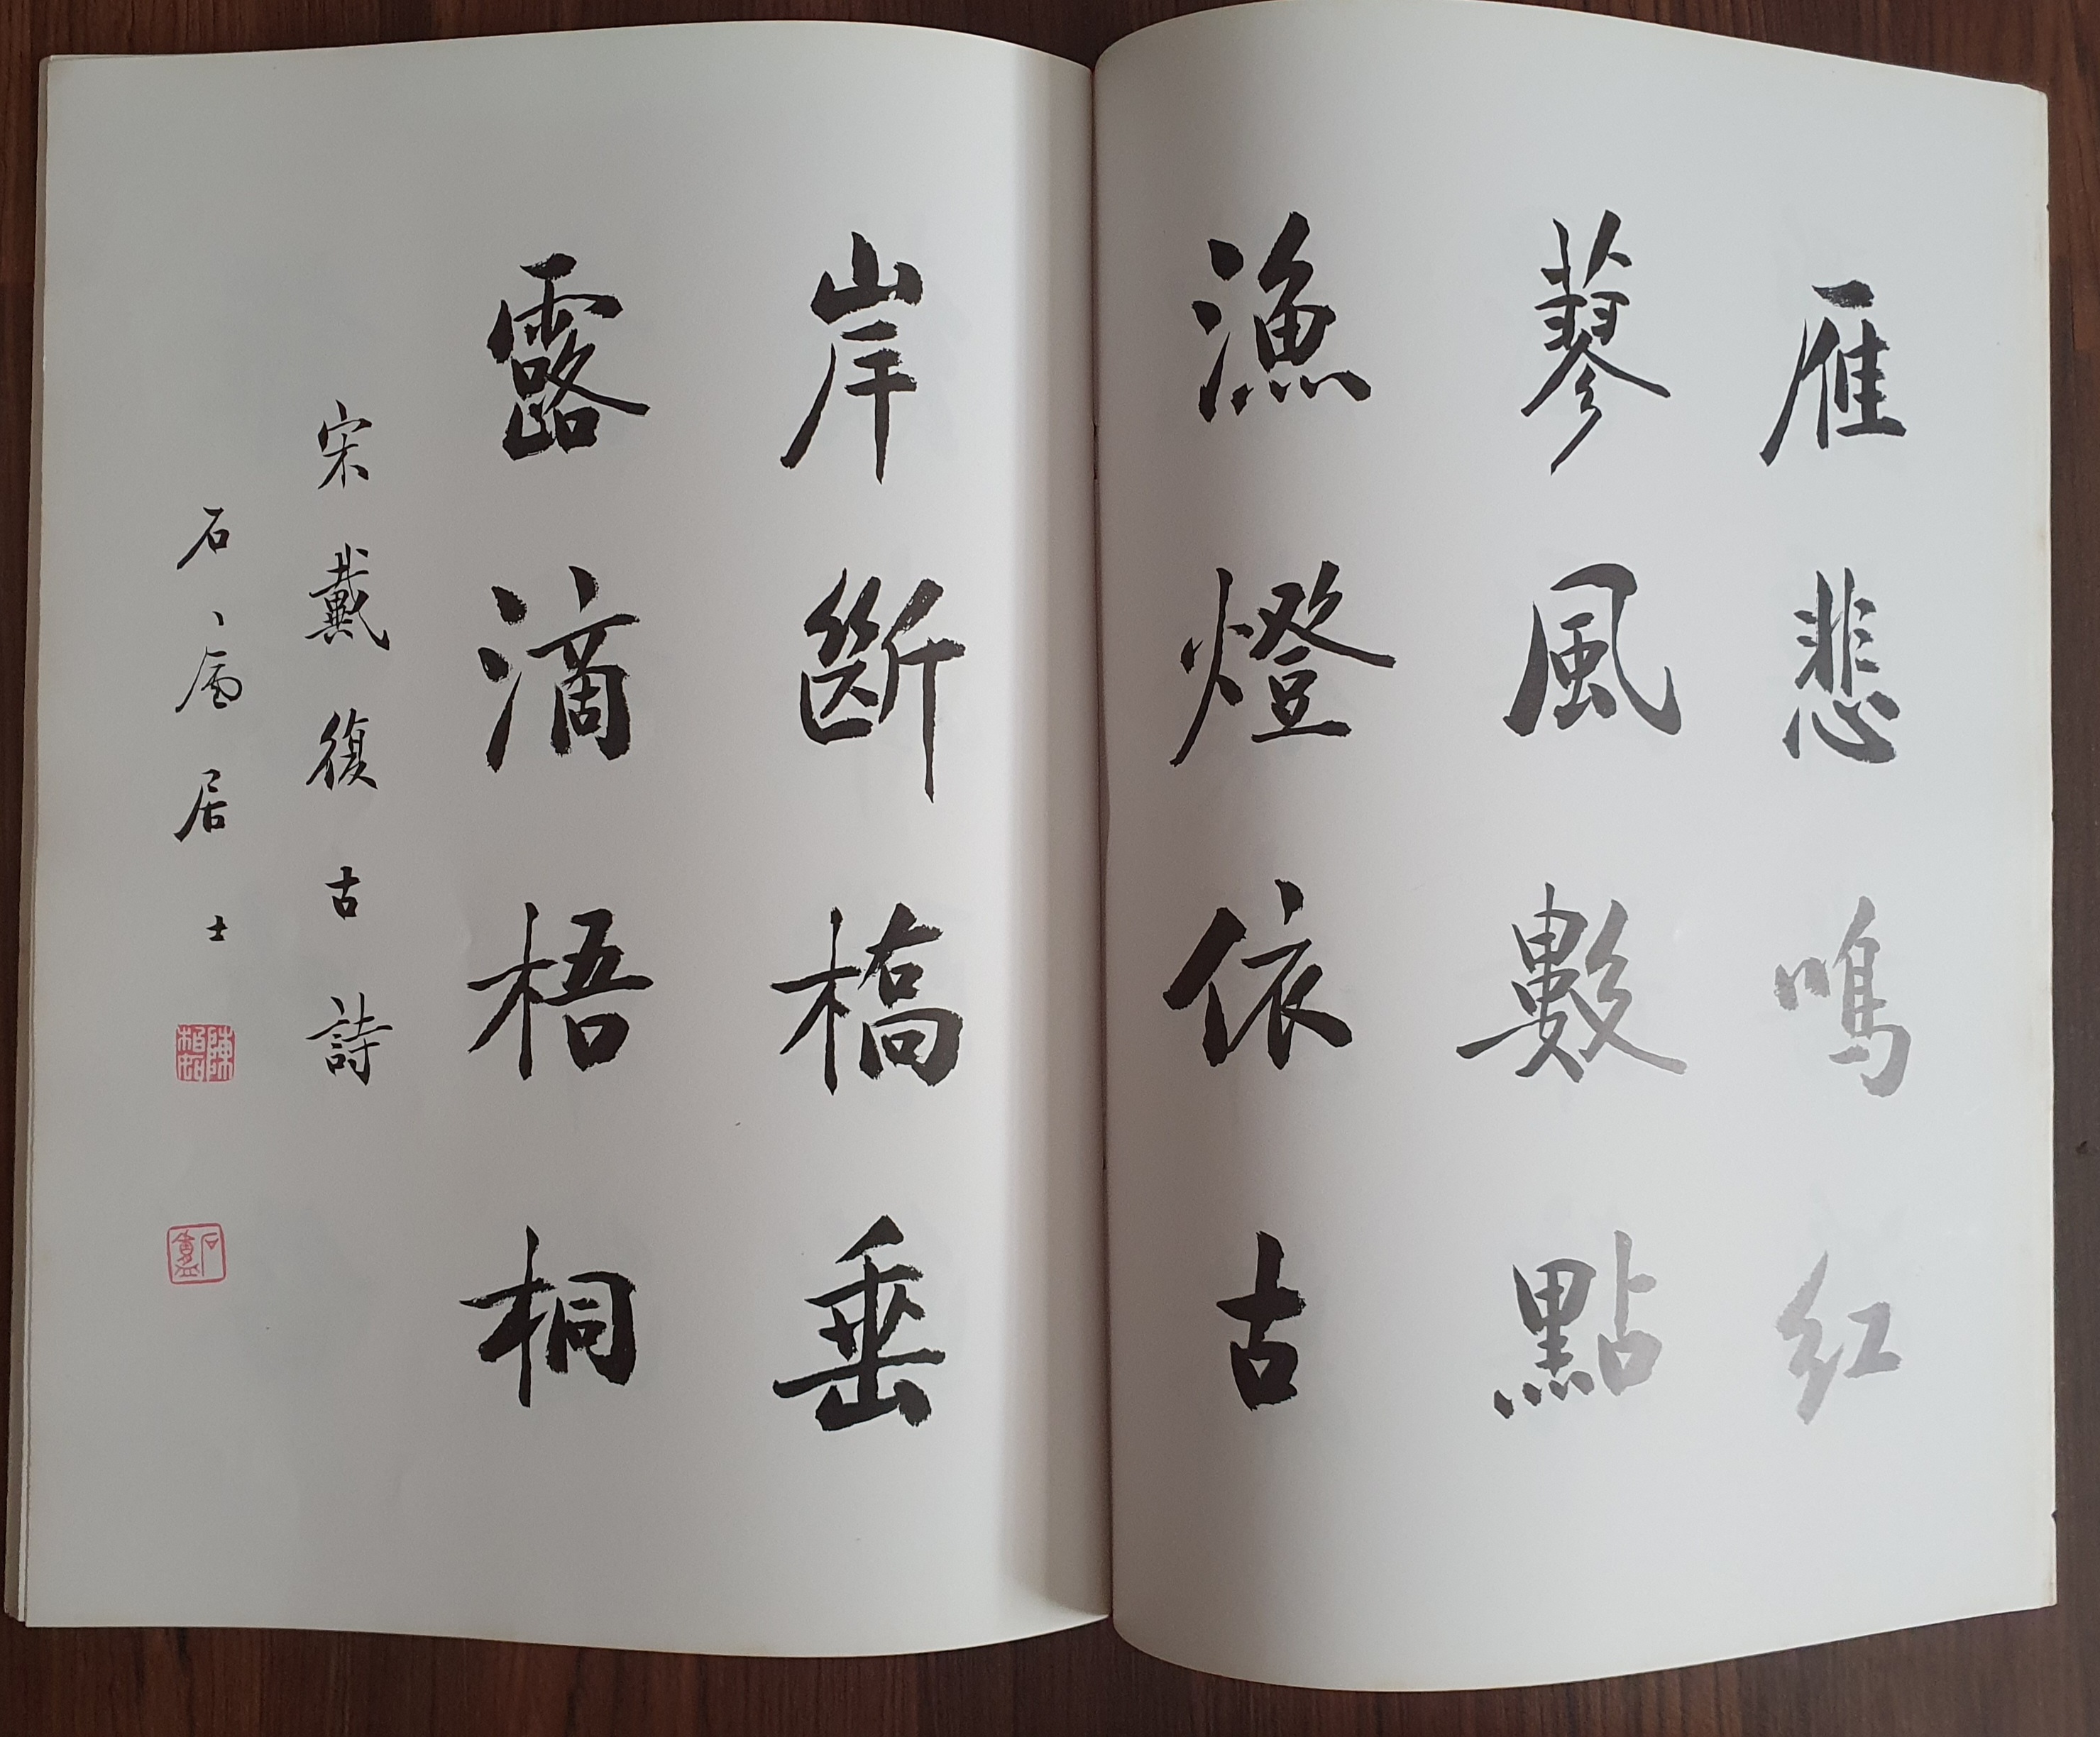 雁悲鳴紅
蓼風數點
漁燈依古
岸斷橋垂
露滴梧桐
宋戴復古詩
石廬居士
石盧